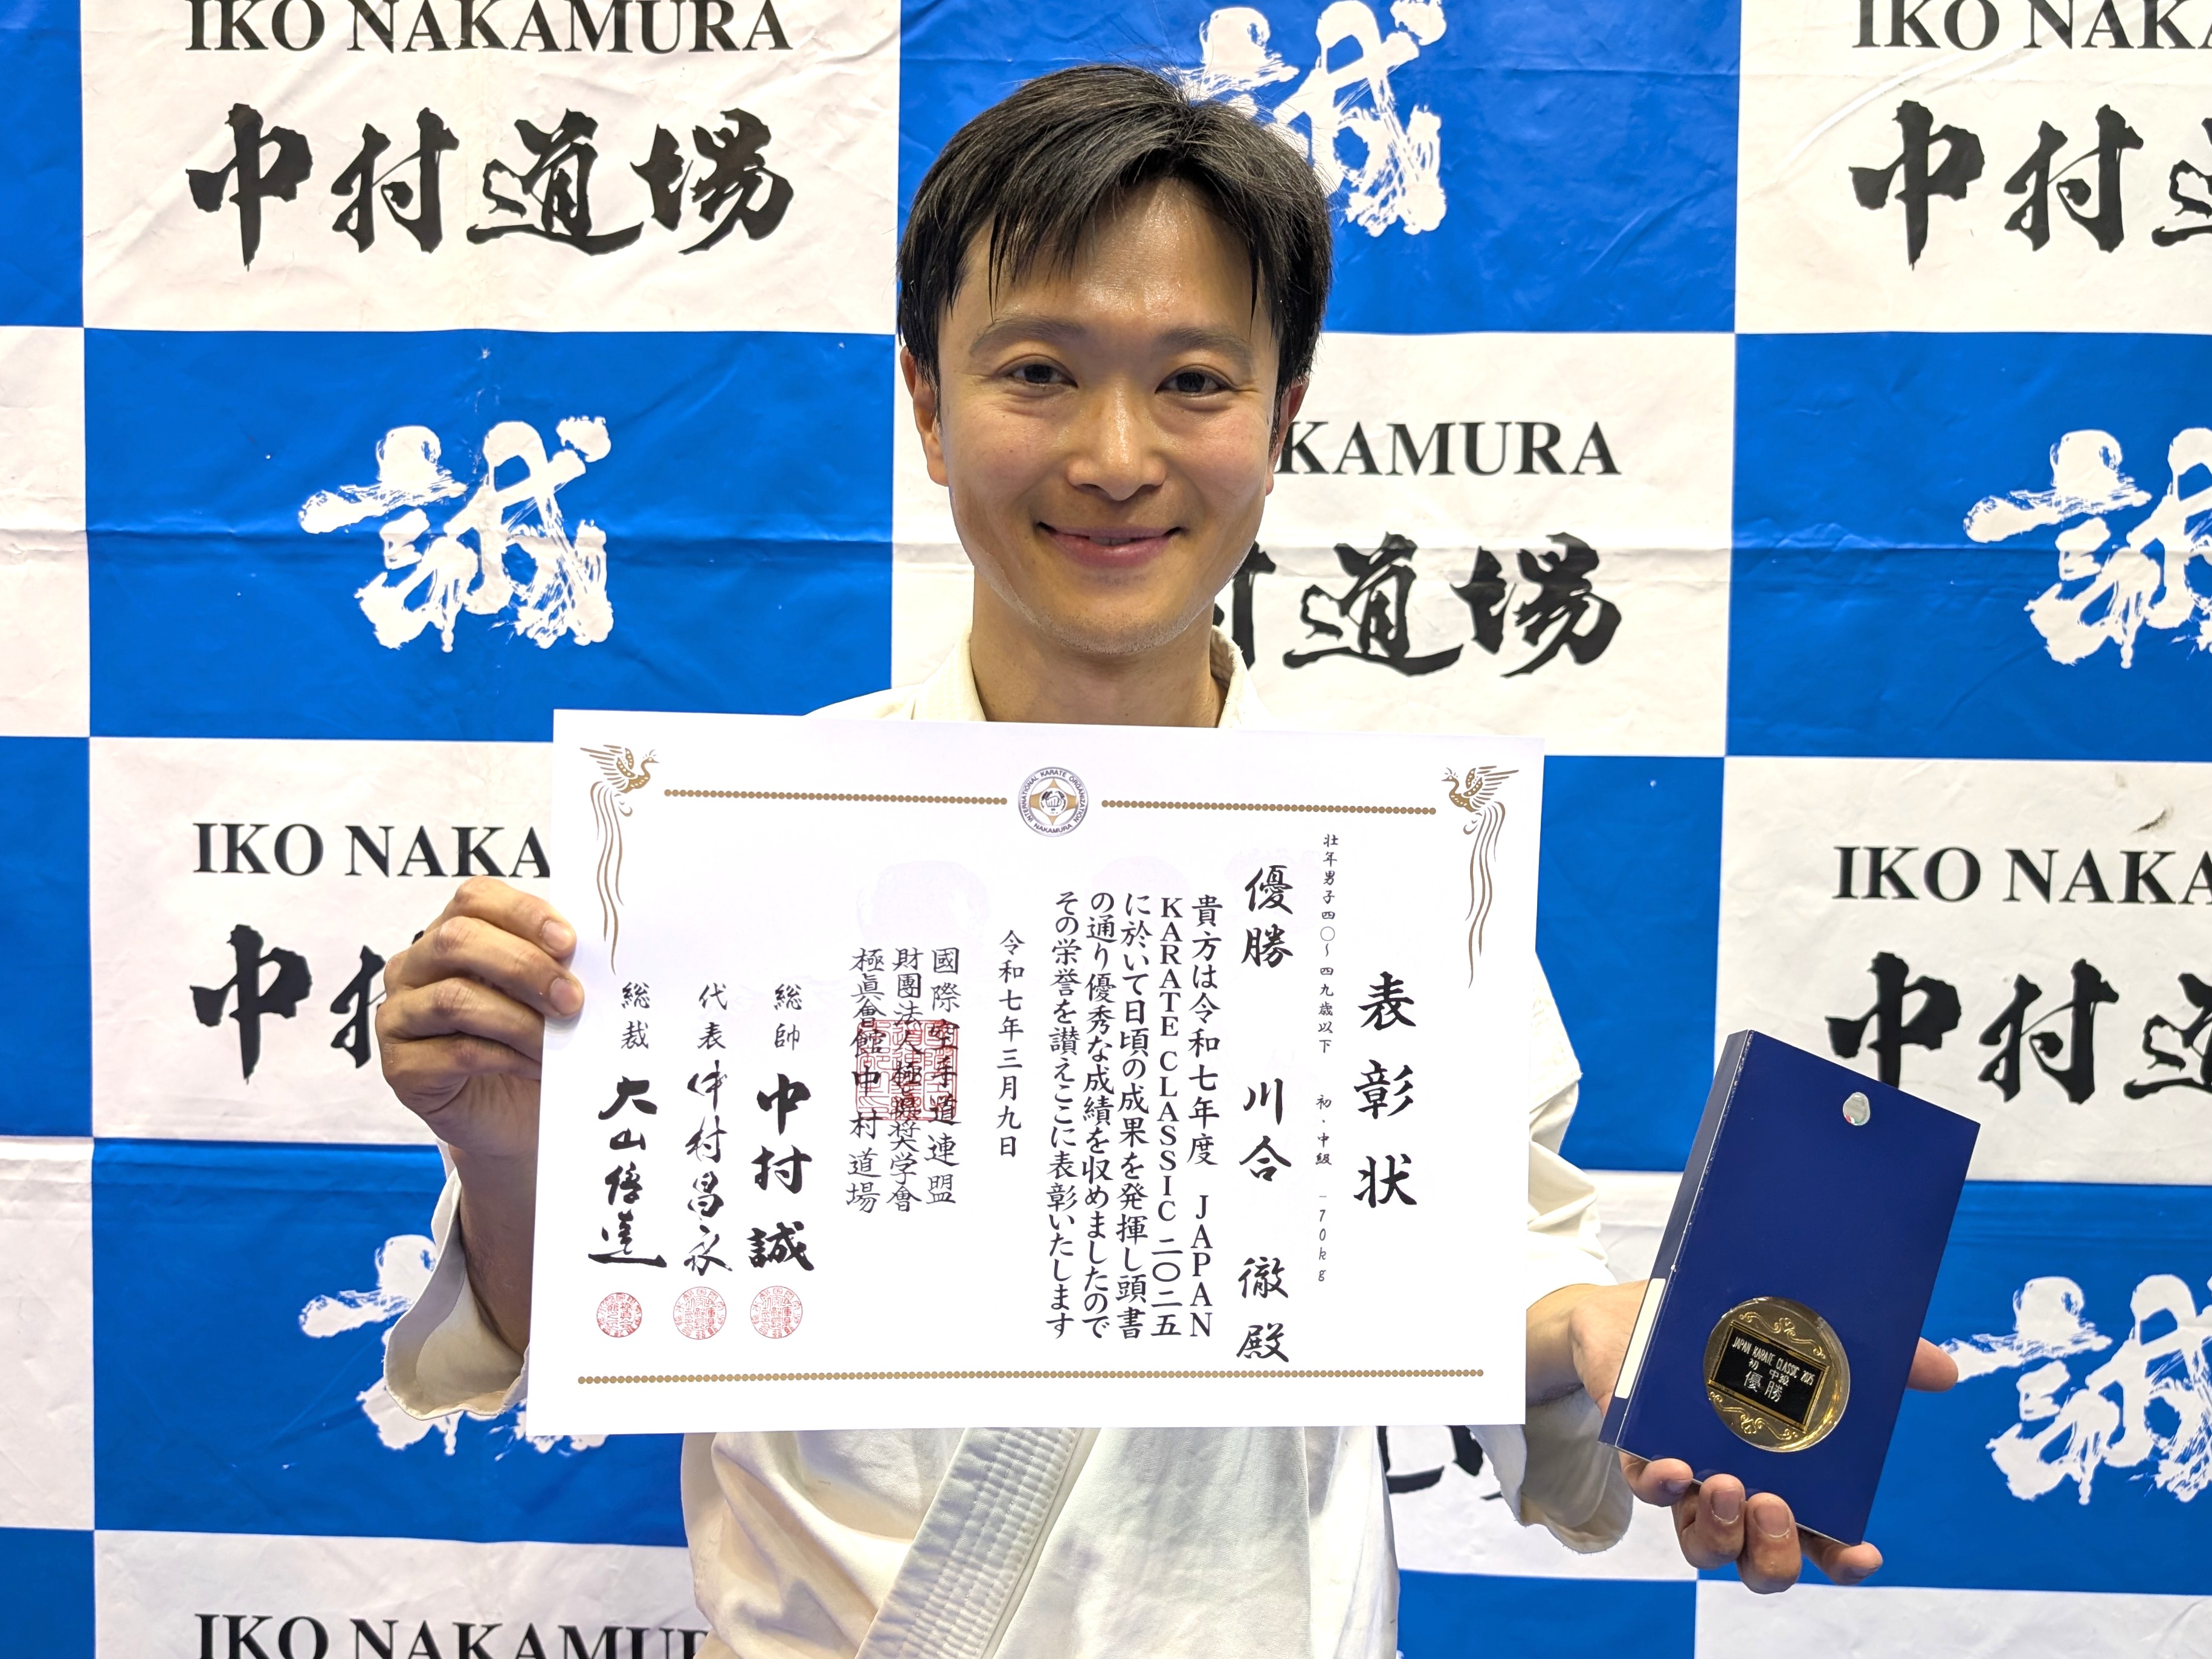 IKO NAKAMURA
中村道場
誠
IKO NAKA
中村
誠
誠
KAMURA
村道場
IKO NAKA
中村
IKO NAKA
中村道
誠
誠
誠
IKO NAKAMUR
INTERNATIONAL KARATE ORGANIZATION
NAKAMURA
表彰状
壮年男子四〇～四九歳以下 初・中級 -70kg
優勝 川合 徹 殿
貴方は令和七年度 JAPAN
KARATE CLASSIC 二〇二五
に於いて日頃の成果を発揮し頭書
の通り優秀な成績を収めましたので
その栄誉を讃えここに表彰いたします
令和七年三月九日
國際空手道連盟
財團法人極真奨学會
極眞會館中村道場
総帥 中村 誠
代表 中村昌永
総裁 大山倍達
JAPAN KARATE CLASSIC 2025
初・中級
優勝